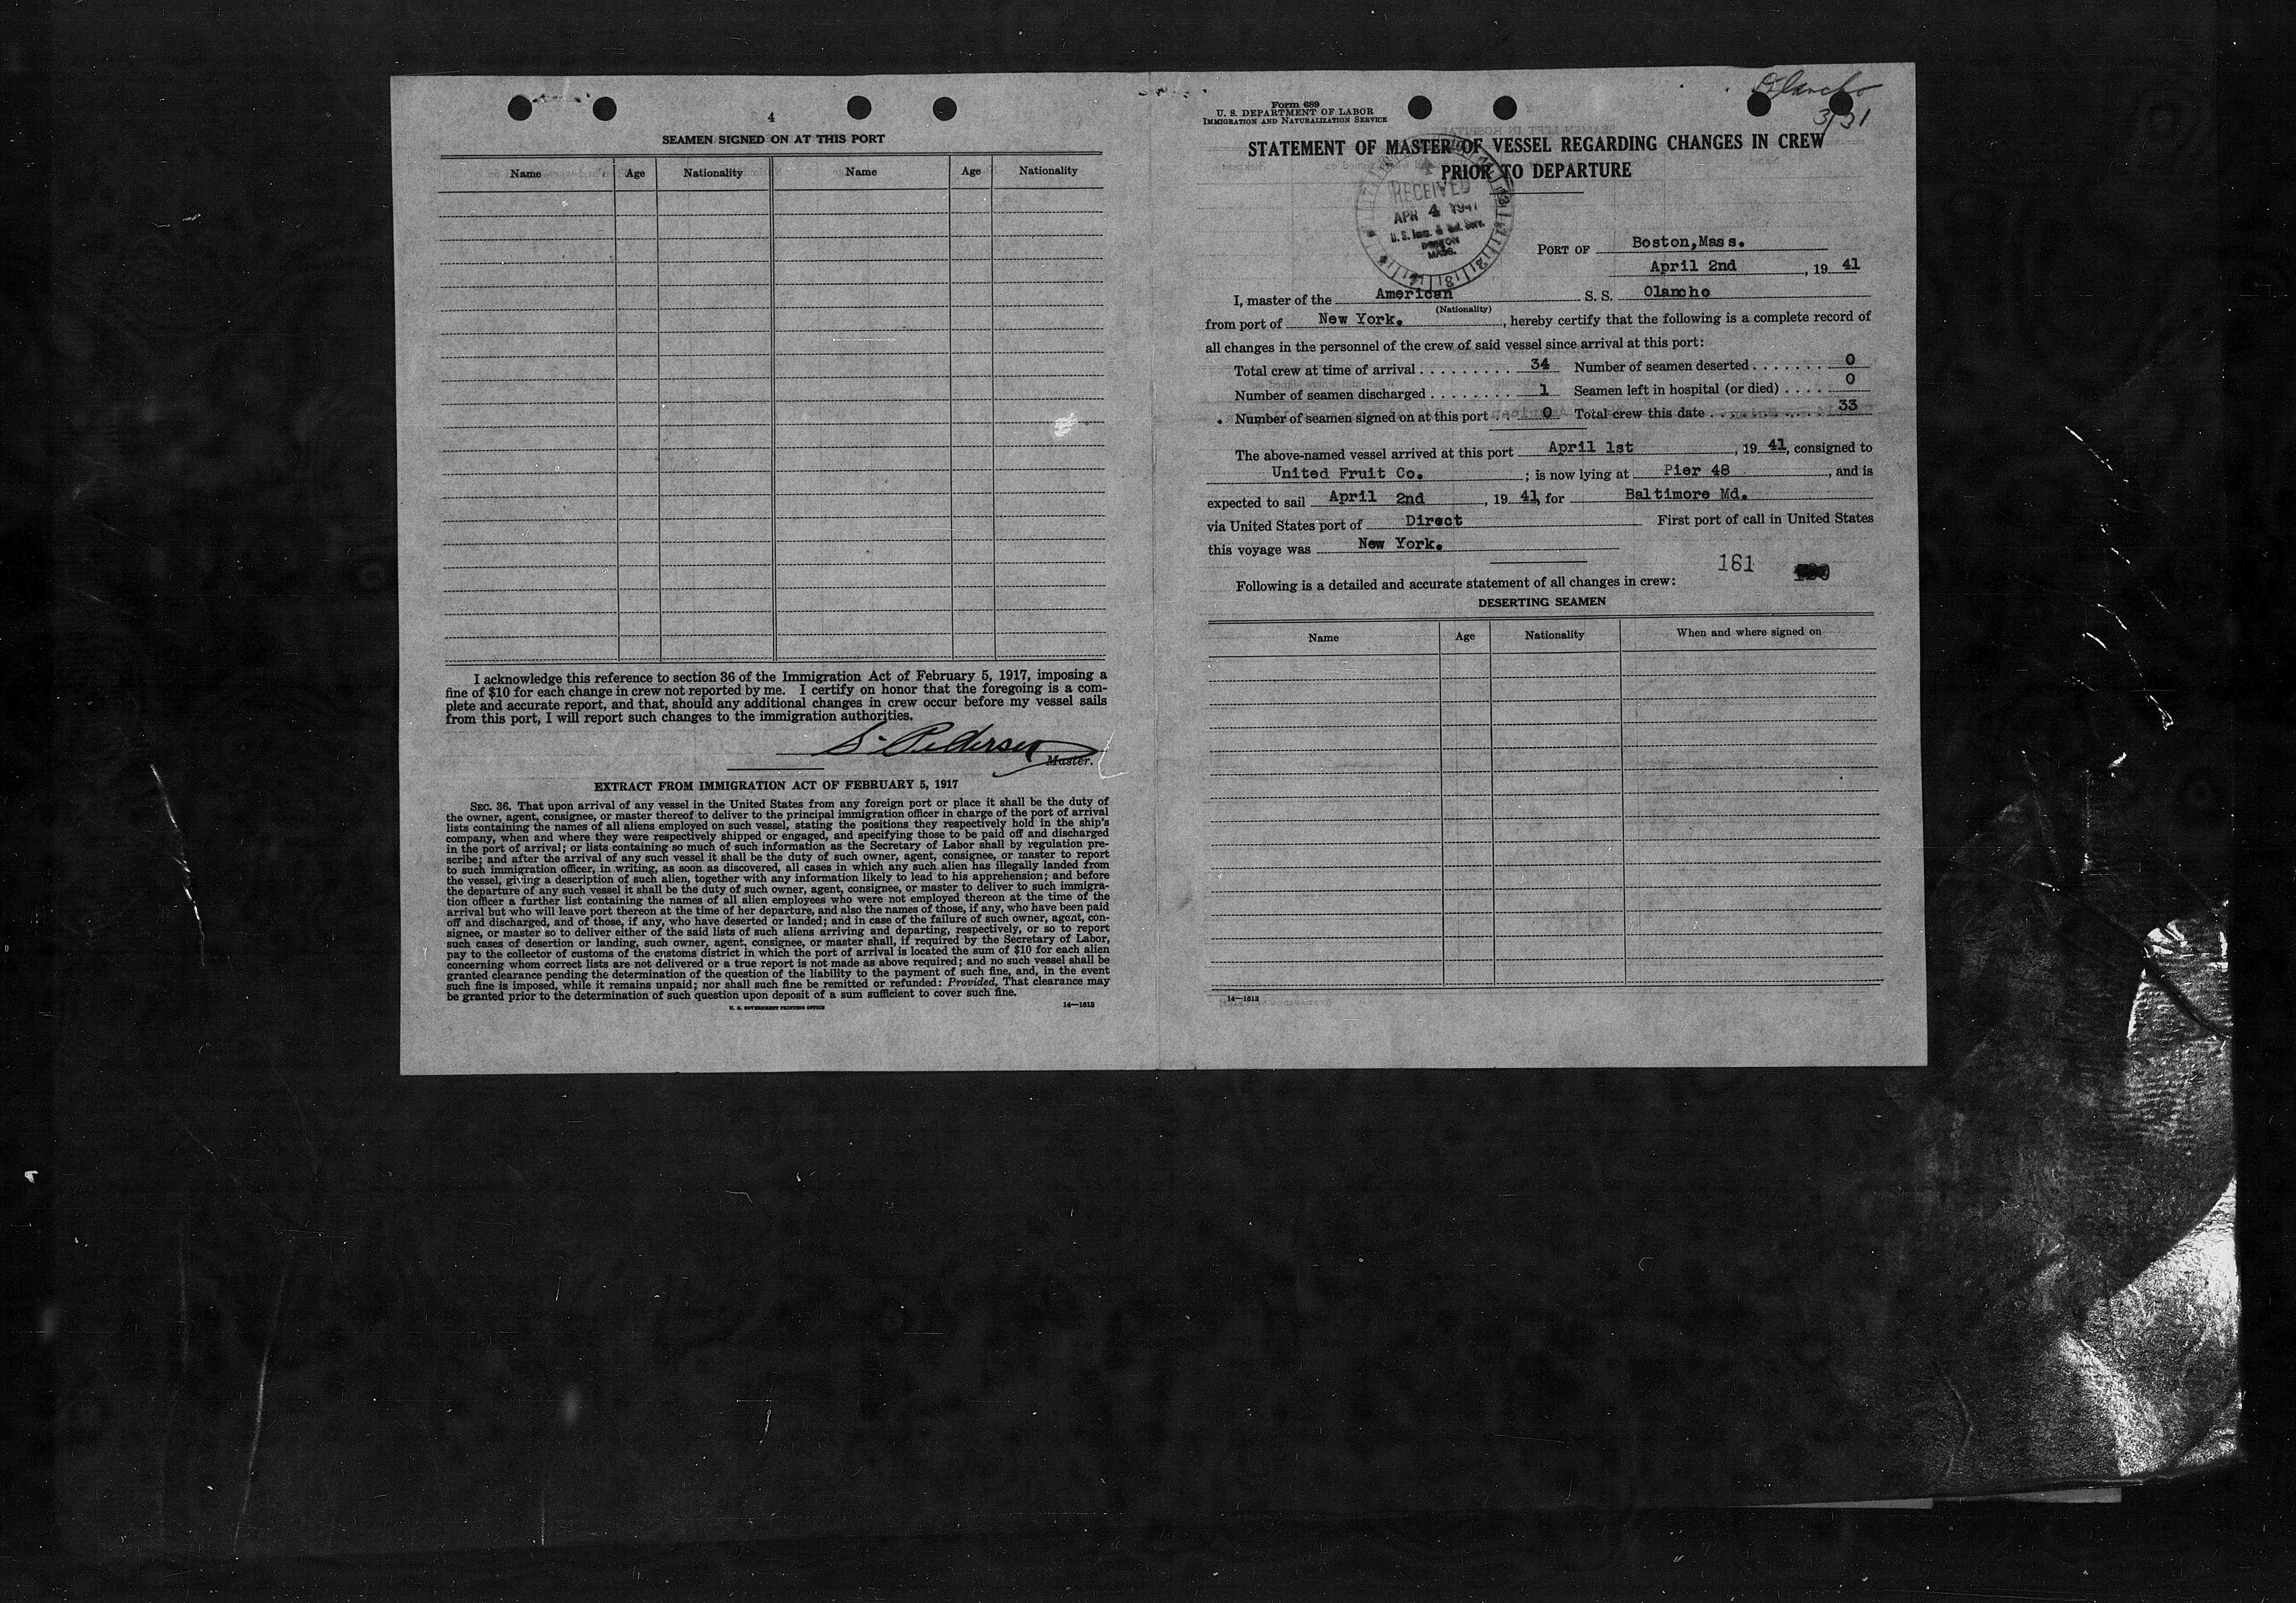 4
SEAMEN SIGNED ON AT THIS PORT
Name Age Nationality Name Age Nationality
I acknowledge this reference to section 36 of the Immigration Act of February 5, 1917, imposing a
fine of $10 for each change in crew not reported by me. I certify on honor that the foregoing is a com-
plete and accurate report, and that, should any additional changes in crew occur before my vessel sails
from this port, I will report such changes to the immigration authorities.
S. Pedersen
Master.
EXTRACT FROM IMMIGRATION ACT OF FEBRUARY 5, 1917
SEC. 36. That upon arrival of any vessel in the United States from any foreign port or place it shall be the duty of
the owner, agent, consignee, or master thereof to deliver to the principal immigration officer in charge of the port of arrival
lists containing the names of all aliens employed on such vessel, stating the positions they respectively hold in the ship's
company, when and where they were respectively shipped or engaged, and specifying those to be paid off and discharged
in the port of arrival; or lists containing so much of such information as the Secretary of Labor shall by regulation pre-
scribe; and after the arrival of any such vessel it shall be the duty of such owner, agent, consignee, or master to report
to such immigration officer, in writing, as soon as discovered, all cases in which any such alien has illegally landed from
the vessel, giving a description of such alien, together with any information likely to lead to his apprehension; and before
the departure of any such vessel it shall be the duty of such owner, agent, consignee, or master to deliver to such immigra-
tion officer a further list containing the names of all alien employees who were not employed thereon at the time of the
arrival but who will leave port thereon at the time of her departure, and also the names of those, if any, who have been paid
off and discharged, and of those, if any, who have deserted or landed; and in case of the failure of such owner, agent, con-
signee, or master so to deliver either of the said lists of such aliens arriving and departing, respectively, or so to report
such cases of desertion or landing, such owner, agent, consignee, or master shall, if required by the Secretary of Labor,
pay to the collector of customs of the customs district in which the port of arrival is located the sum of $10 for each alien
concerning whom correct lists are not delivered or a true report is not made as above required; and no such vessel shall be
granted clearance pending the determination of the question of the liability to the payment of such fine, and, in the event
such fine is imposed, while it remains unpaid; nor shall such fine be remitted or refunded: Provided, That clearance may
be granted prior to the determination of such question upon deposit of a sum sufficient to cover such fine.
U. S. GOVERNMENT PRINTING OFFICE 14—1613
Olancho
3/31
Form 689
U. S. DEPARTMENT OF LABOR
IMMIGRATION AND NATURALIZATION SERVICE
STATEMENT OF MASTER OF VESSEL REGARDING CHANGES IN CREW
PRIOR TO DEPARTURE
RECEIVED
APR 4 1941
BOSTON
MASS.
PORT OF Boston,Mass.
April 2nd, 19 41
I, master of the American S. S. Olancho
(Nationality)
from port of New York., hereby certify that the following is a complete record of
all changes in the personnel of the crew of said vessel since arrival at this port:
Total crew at time of arrival 34 Number of seamen deserted 0
Number of seamen discharged 1 Seamen left in hospital (or died) 0
Number of seamen signed on at this port 0 Total crew this date 33
The above-named vessel arrived at this port April 1st, 19 41, consigned to
United Fruit Co.; is now lying at Pier 48, and is
expected to sail April 2nd, 19 41, for Baltimore Md.
via United States port of Direct First port of call in United States
this voyage was New York.
161
Following is a detailed and accurate statement of all changes in crew:
DESERTING SEAMEN
Name Age Nationality When and where signed on
14—1613